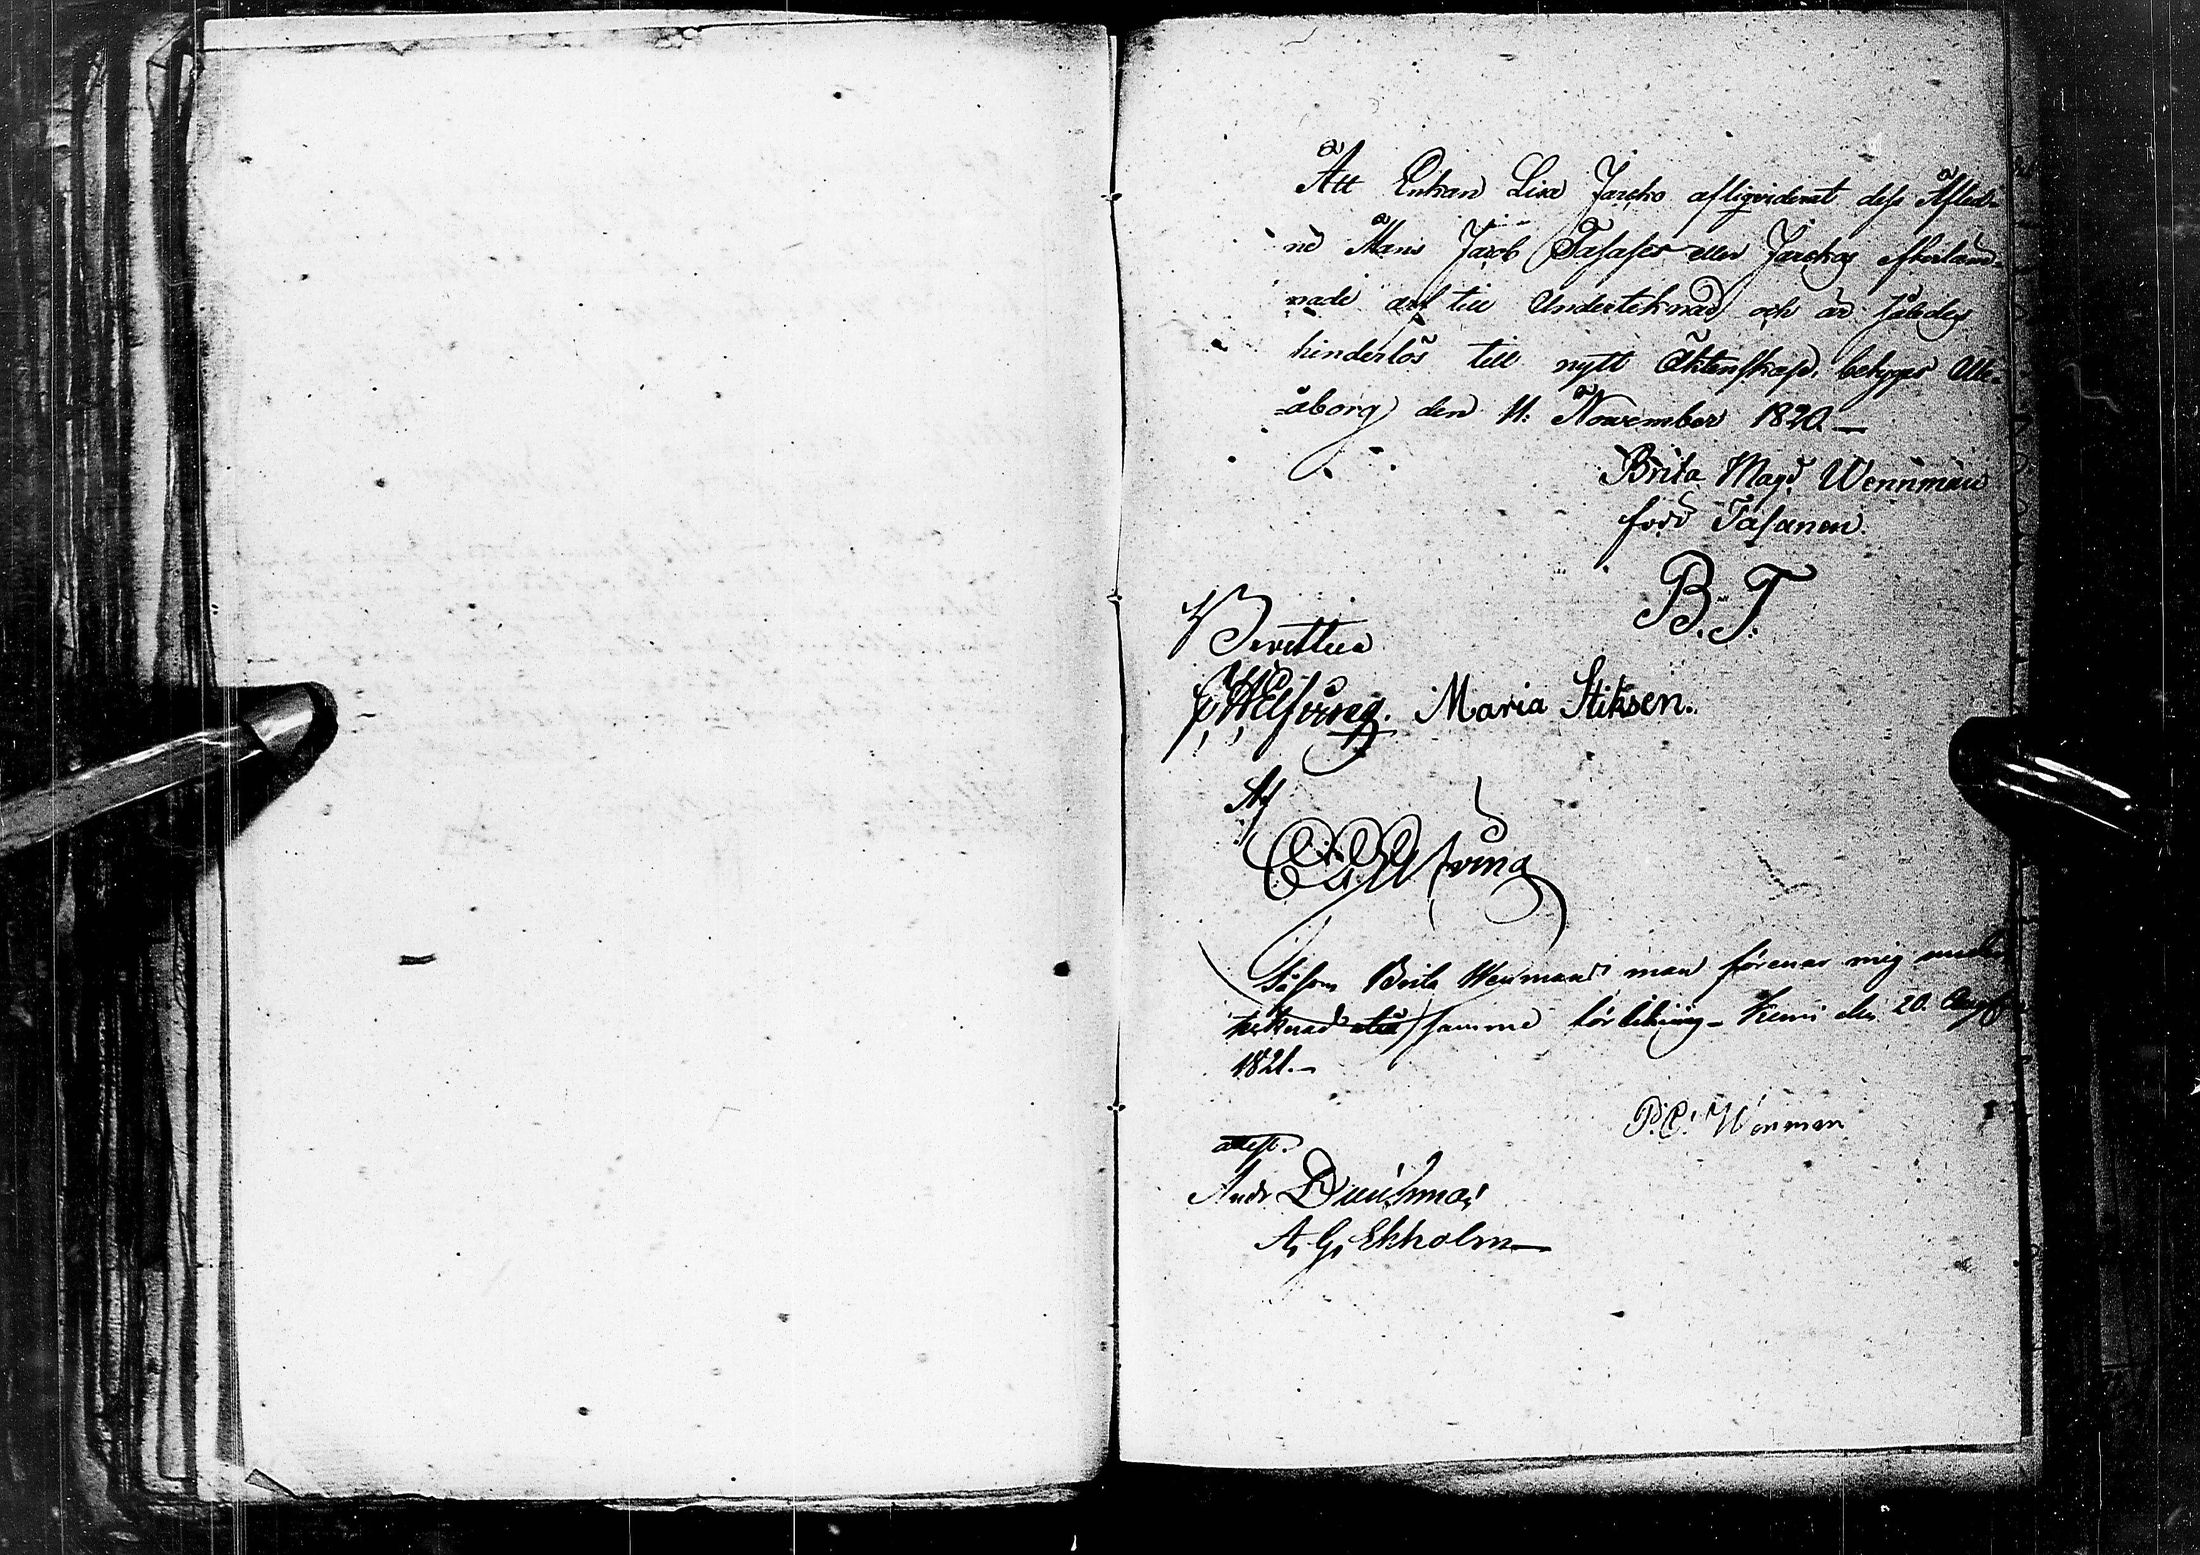 Att Enkan Lisa Jarcko afliqviderat dess Afled-
ne Mans Jacob Tasases eller Jarckas efterläm-
nade arf till Underteknad och är således
hinderlös till nytt Äktenskap, betygas Ule-
åborg den 11: November 1820.—
Brita Magd Wennman
född Tasanen.
B. T.
Berettica
Maria Stiksen.
Af
Såsom Brita Wenmans man förenar mig under
teknad samme förlikning – Kemi den 20. Aug
1821.—
P. C. Wenman
attest.
Andr
A. G. Ekholm